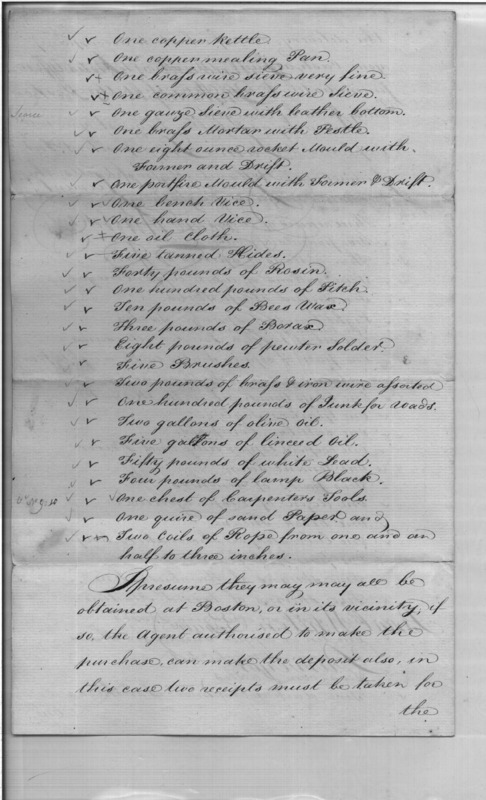 One copper Kettle.
One copper mealing Pan.
One brass wire sieve very fine.
One common brass wire Sieve.
One gawze Sieve with leather bottom.
One brass Mortar with Pestle.
One eight ounce rocket Mould with
Former and Drift.
One portfire Mould with Former & Drift.
One bench Vice.
One hand Vice.
One oil Cloth.
Five tanned Hides.
Forty pounds of Rosin.
One hundred pounds of Pitch.
Ten pounds of Bees Wax.
Three pounds of Borax
Eight pounds of pewter Solder.
Five Brushes.
Two pounds of brass & iron wire assorted
One hundred pounds of Junk for Wads.
Two gallons of olive Oil.
Five gallons of linceed Oil.
Fifty pounds of white Lead.
Four pounds of lamp Black.
One chest of Carpenters Tools.
One quire of sand Paper and
Two Coils of Rope from one and an
half to three inches.
I presume they may may all be
obtained at Boston, or in its vicinity, if
so, the Agent authorised to make the
purchase, can make the deposit also, in
this case two receipts must be taken for
the